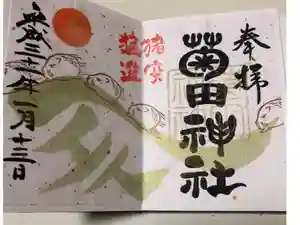 奉拝
菊田神社
猪突
猛進
亥
平成三十一年一月十三日